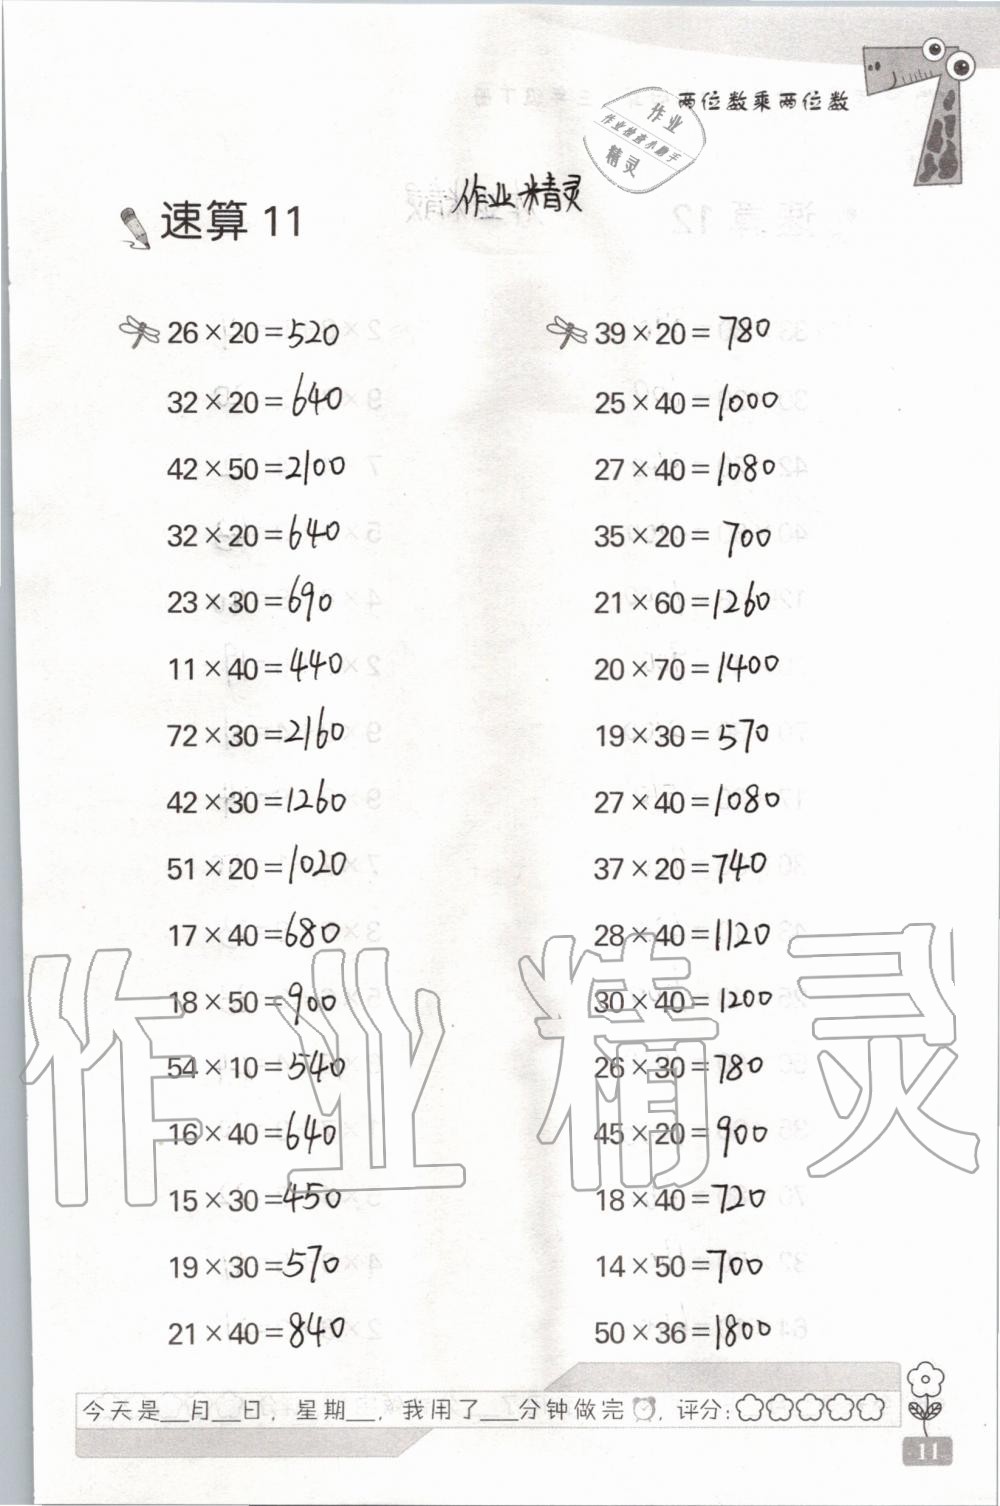 两位数乘两位数
作业
作业检查小助手
精灵
作业精灵
速算 11
26×20=520
32×20=640
42×50=2100
32×20=640
23×30=690
11×40=440
72×30=2160
42×30=1260
51×20=1020
17×40=680
18×50=900
54×10=540
16×40=640
15×30=450
19×30=570
21×40=840
39×20=780
25×40=1000
27×40=1080
35×20=700
21×60=1260
20×70=1400
19×30=570
27×40=1080
37×20=740
28×40=1120
30×40=1200
26×30=780
45×20=900
18×40=720
14×50=700
50×36=1800
作业精灵
今天是__月__日，星期__，我用了___分钟做完，评分：
11